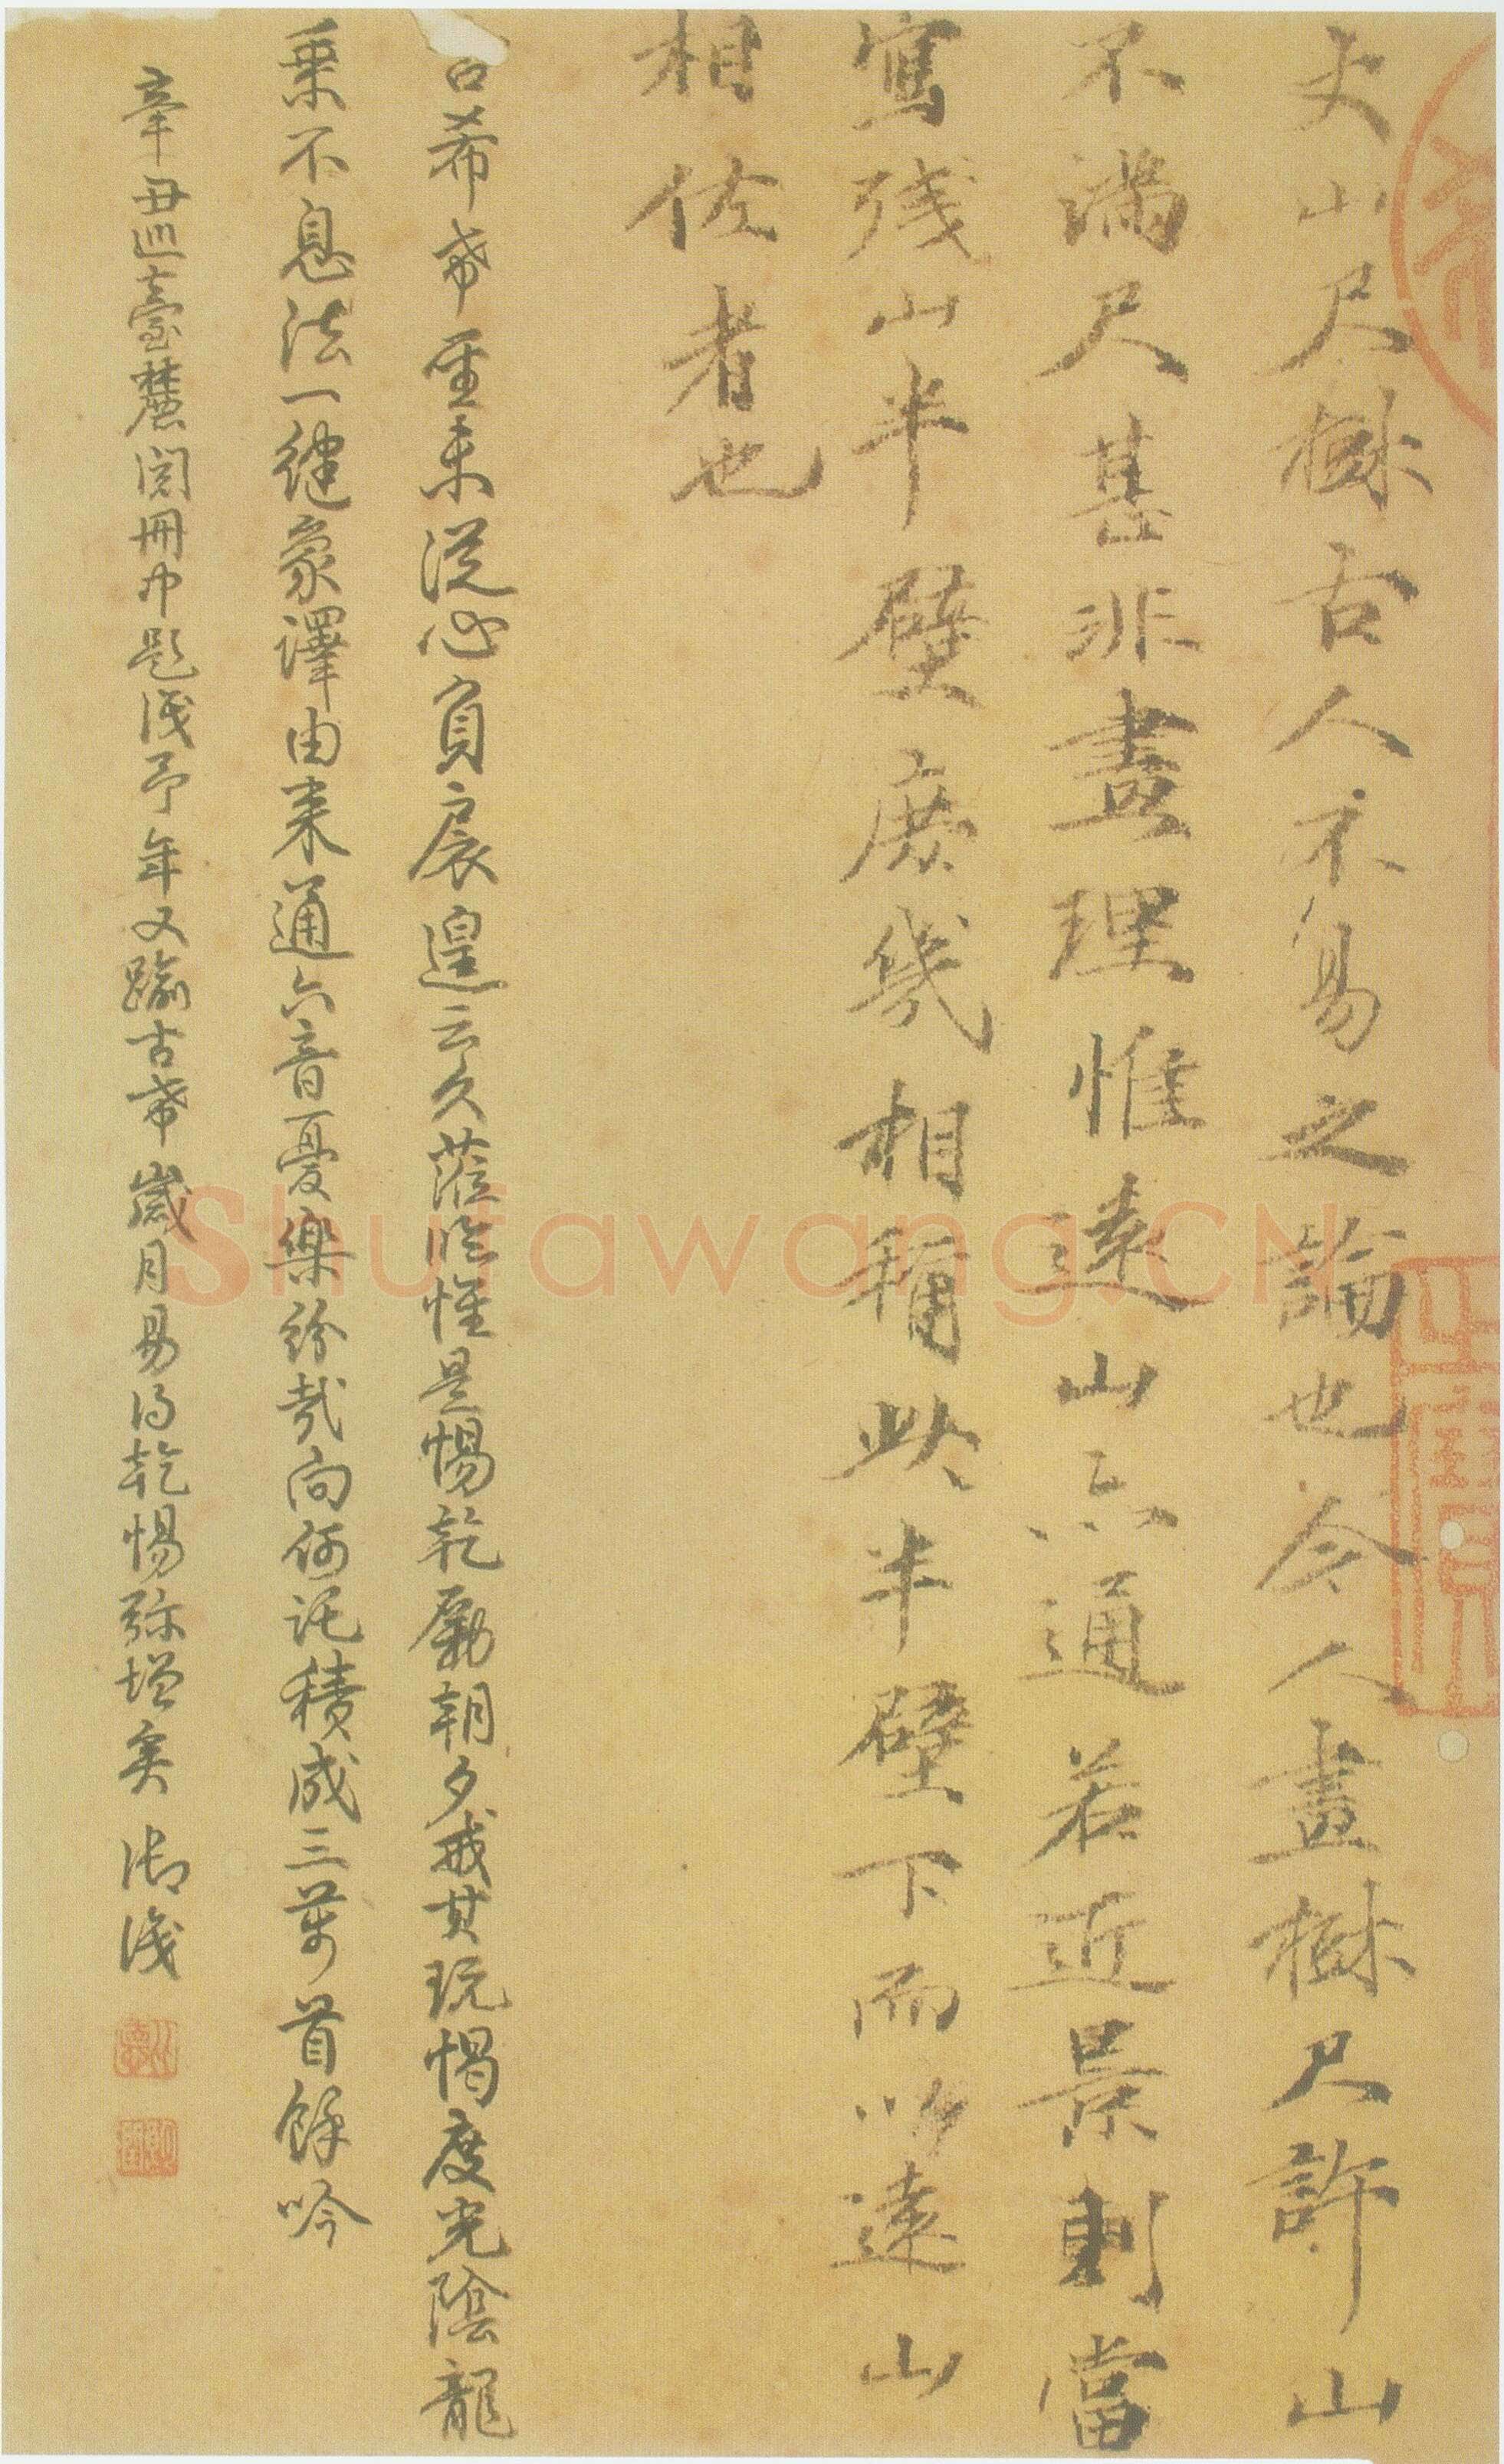 丈山尺樹古人不易之論也今人畫樹尺許山
不滿尺甚非畫理惟遠山亦通若近景則當
寫殘山半壁庶幾相稱此半壁下而以遠山
相佐者也
希希聖未從心負扆遑云久蒞臨惟是惕乾勵朝夕戒其玩愒度光陰龍
乘不息法一健象譯由来通六音憂樂紛哉向何託積成三萬首餘吟
辛丑巡臺麓閱冊中題識予年又踰古希歲月易得乾惕弥增矣 御識
Shufawang.CN